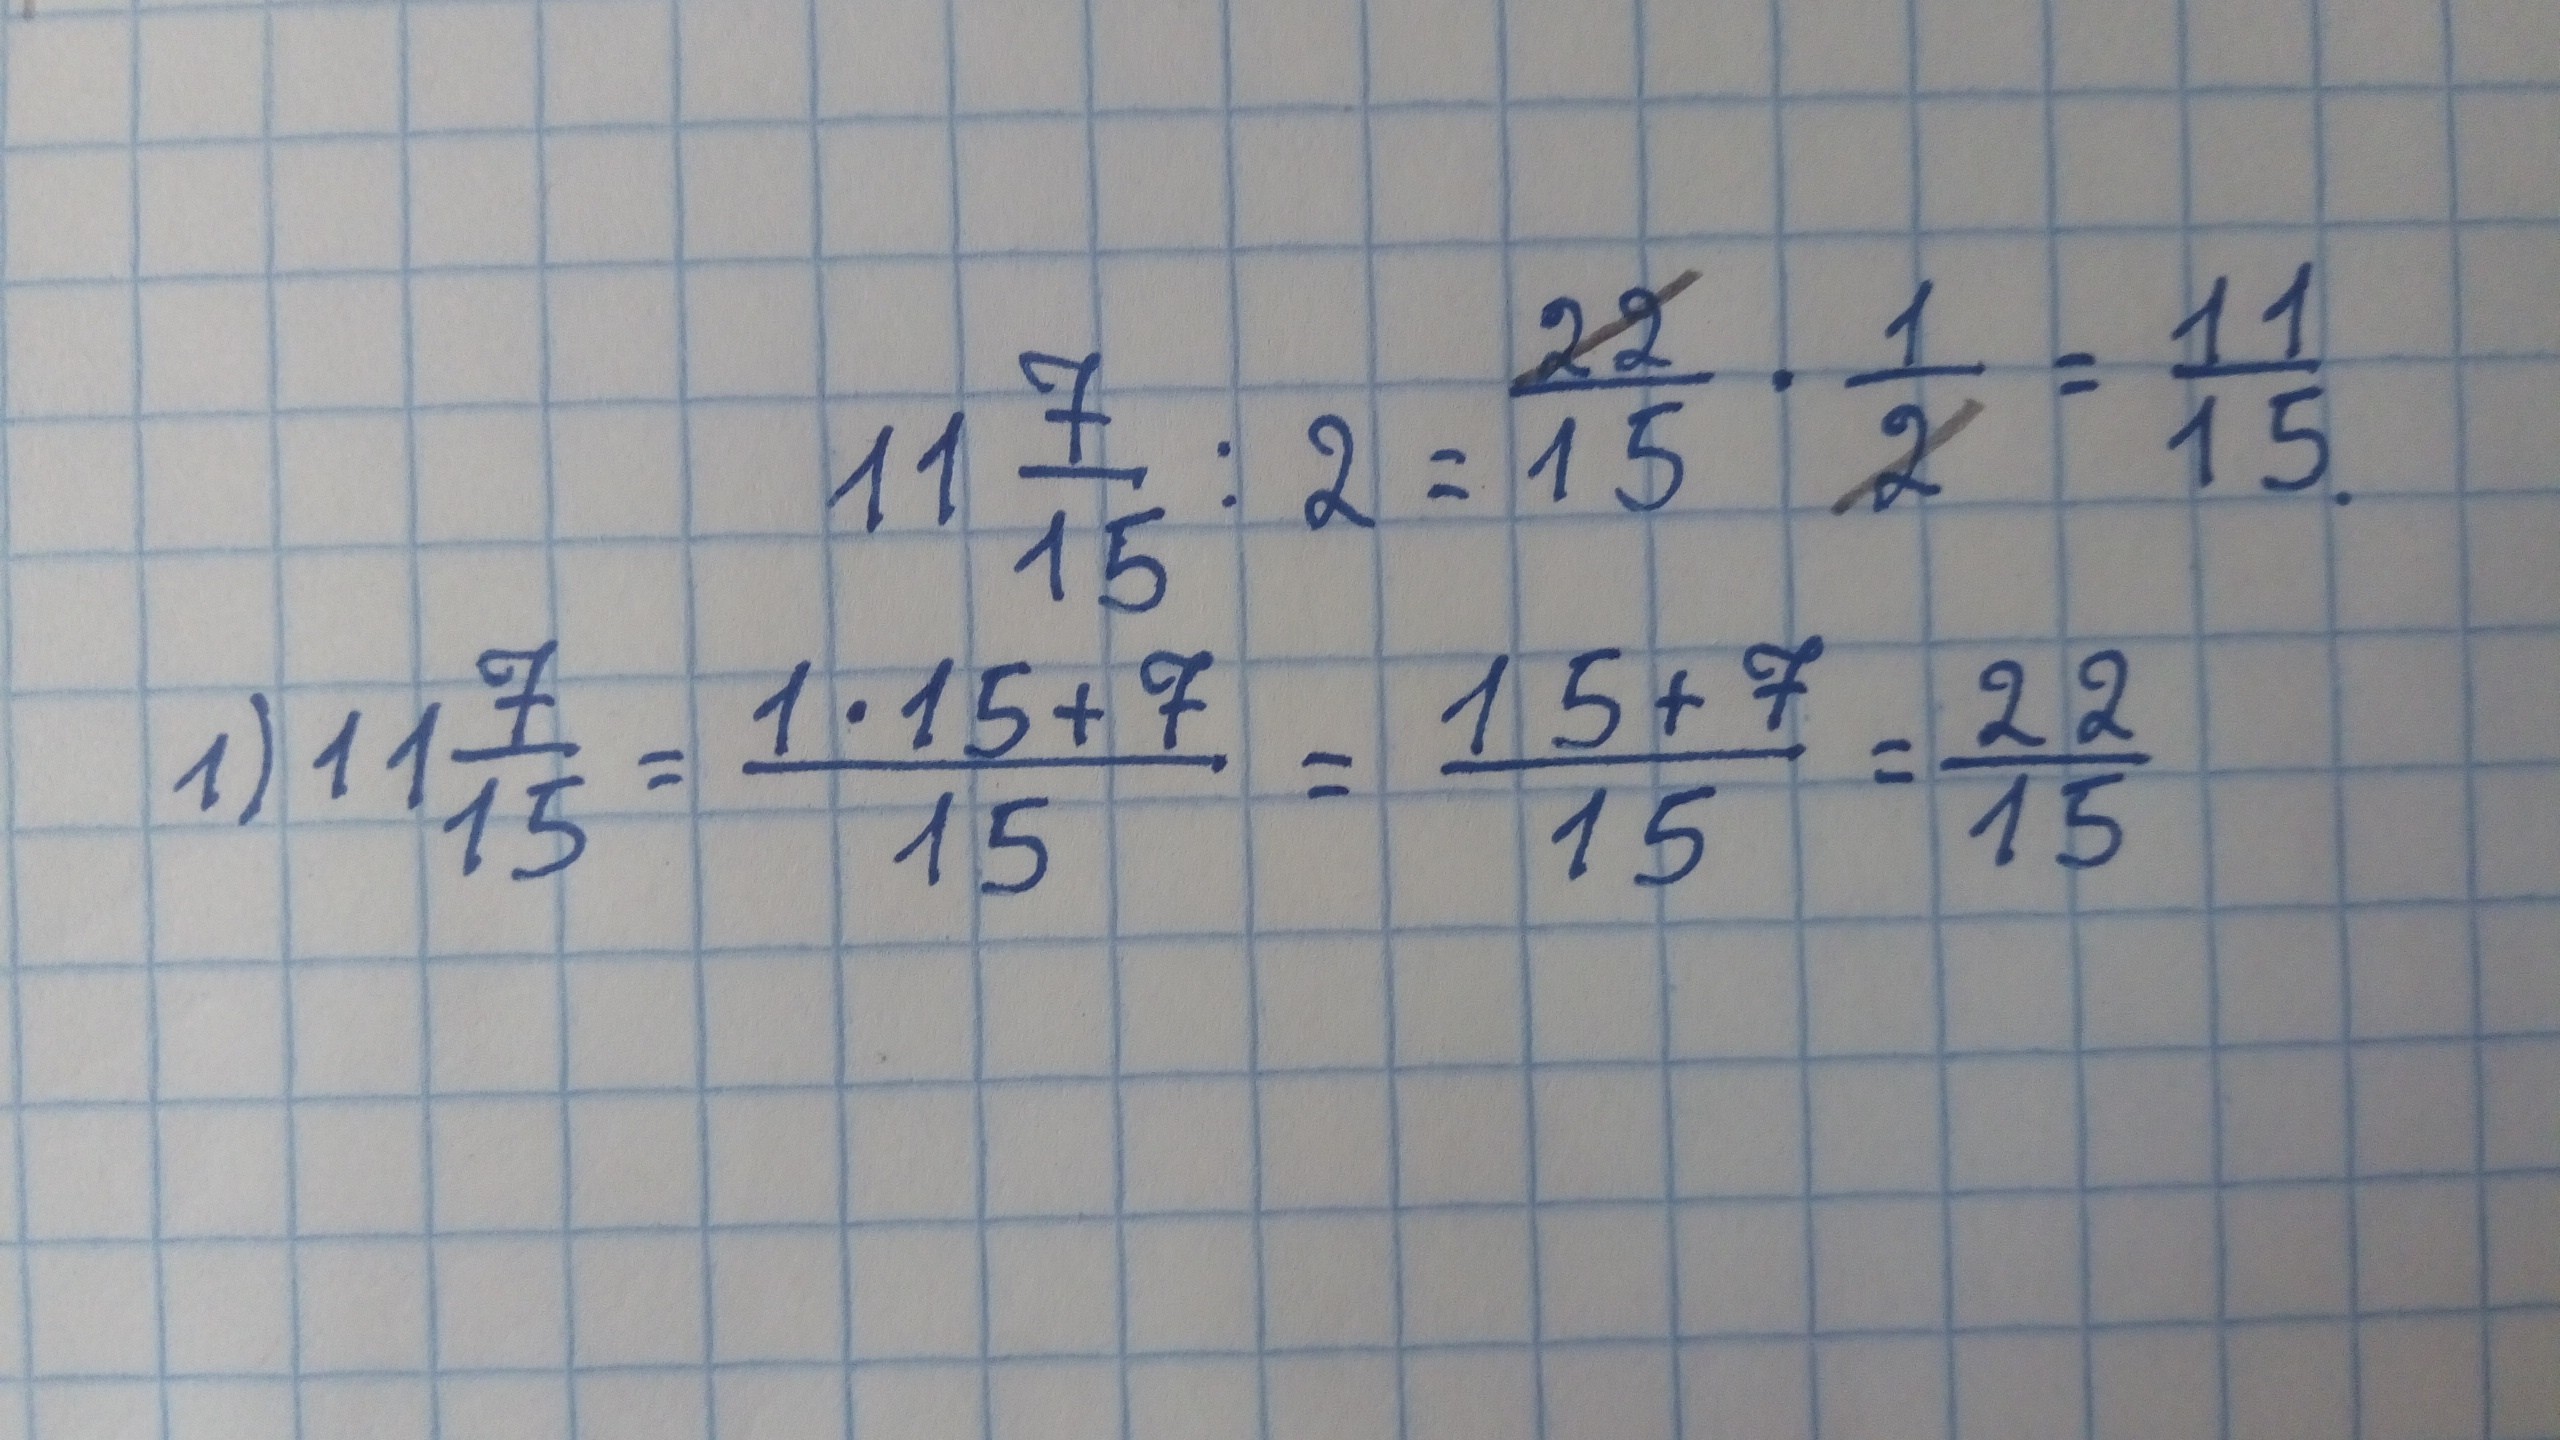 11 7/15 : 2 = 22/15 · 1/2 = 11/15.
1) 11 7/15 = 1·15+7/15 = 15+7/15 = 22/15